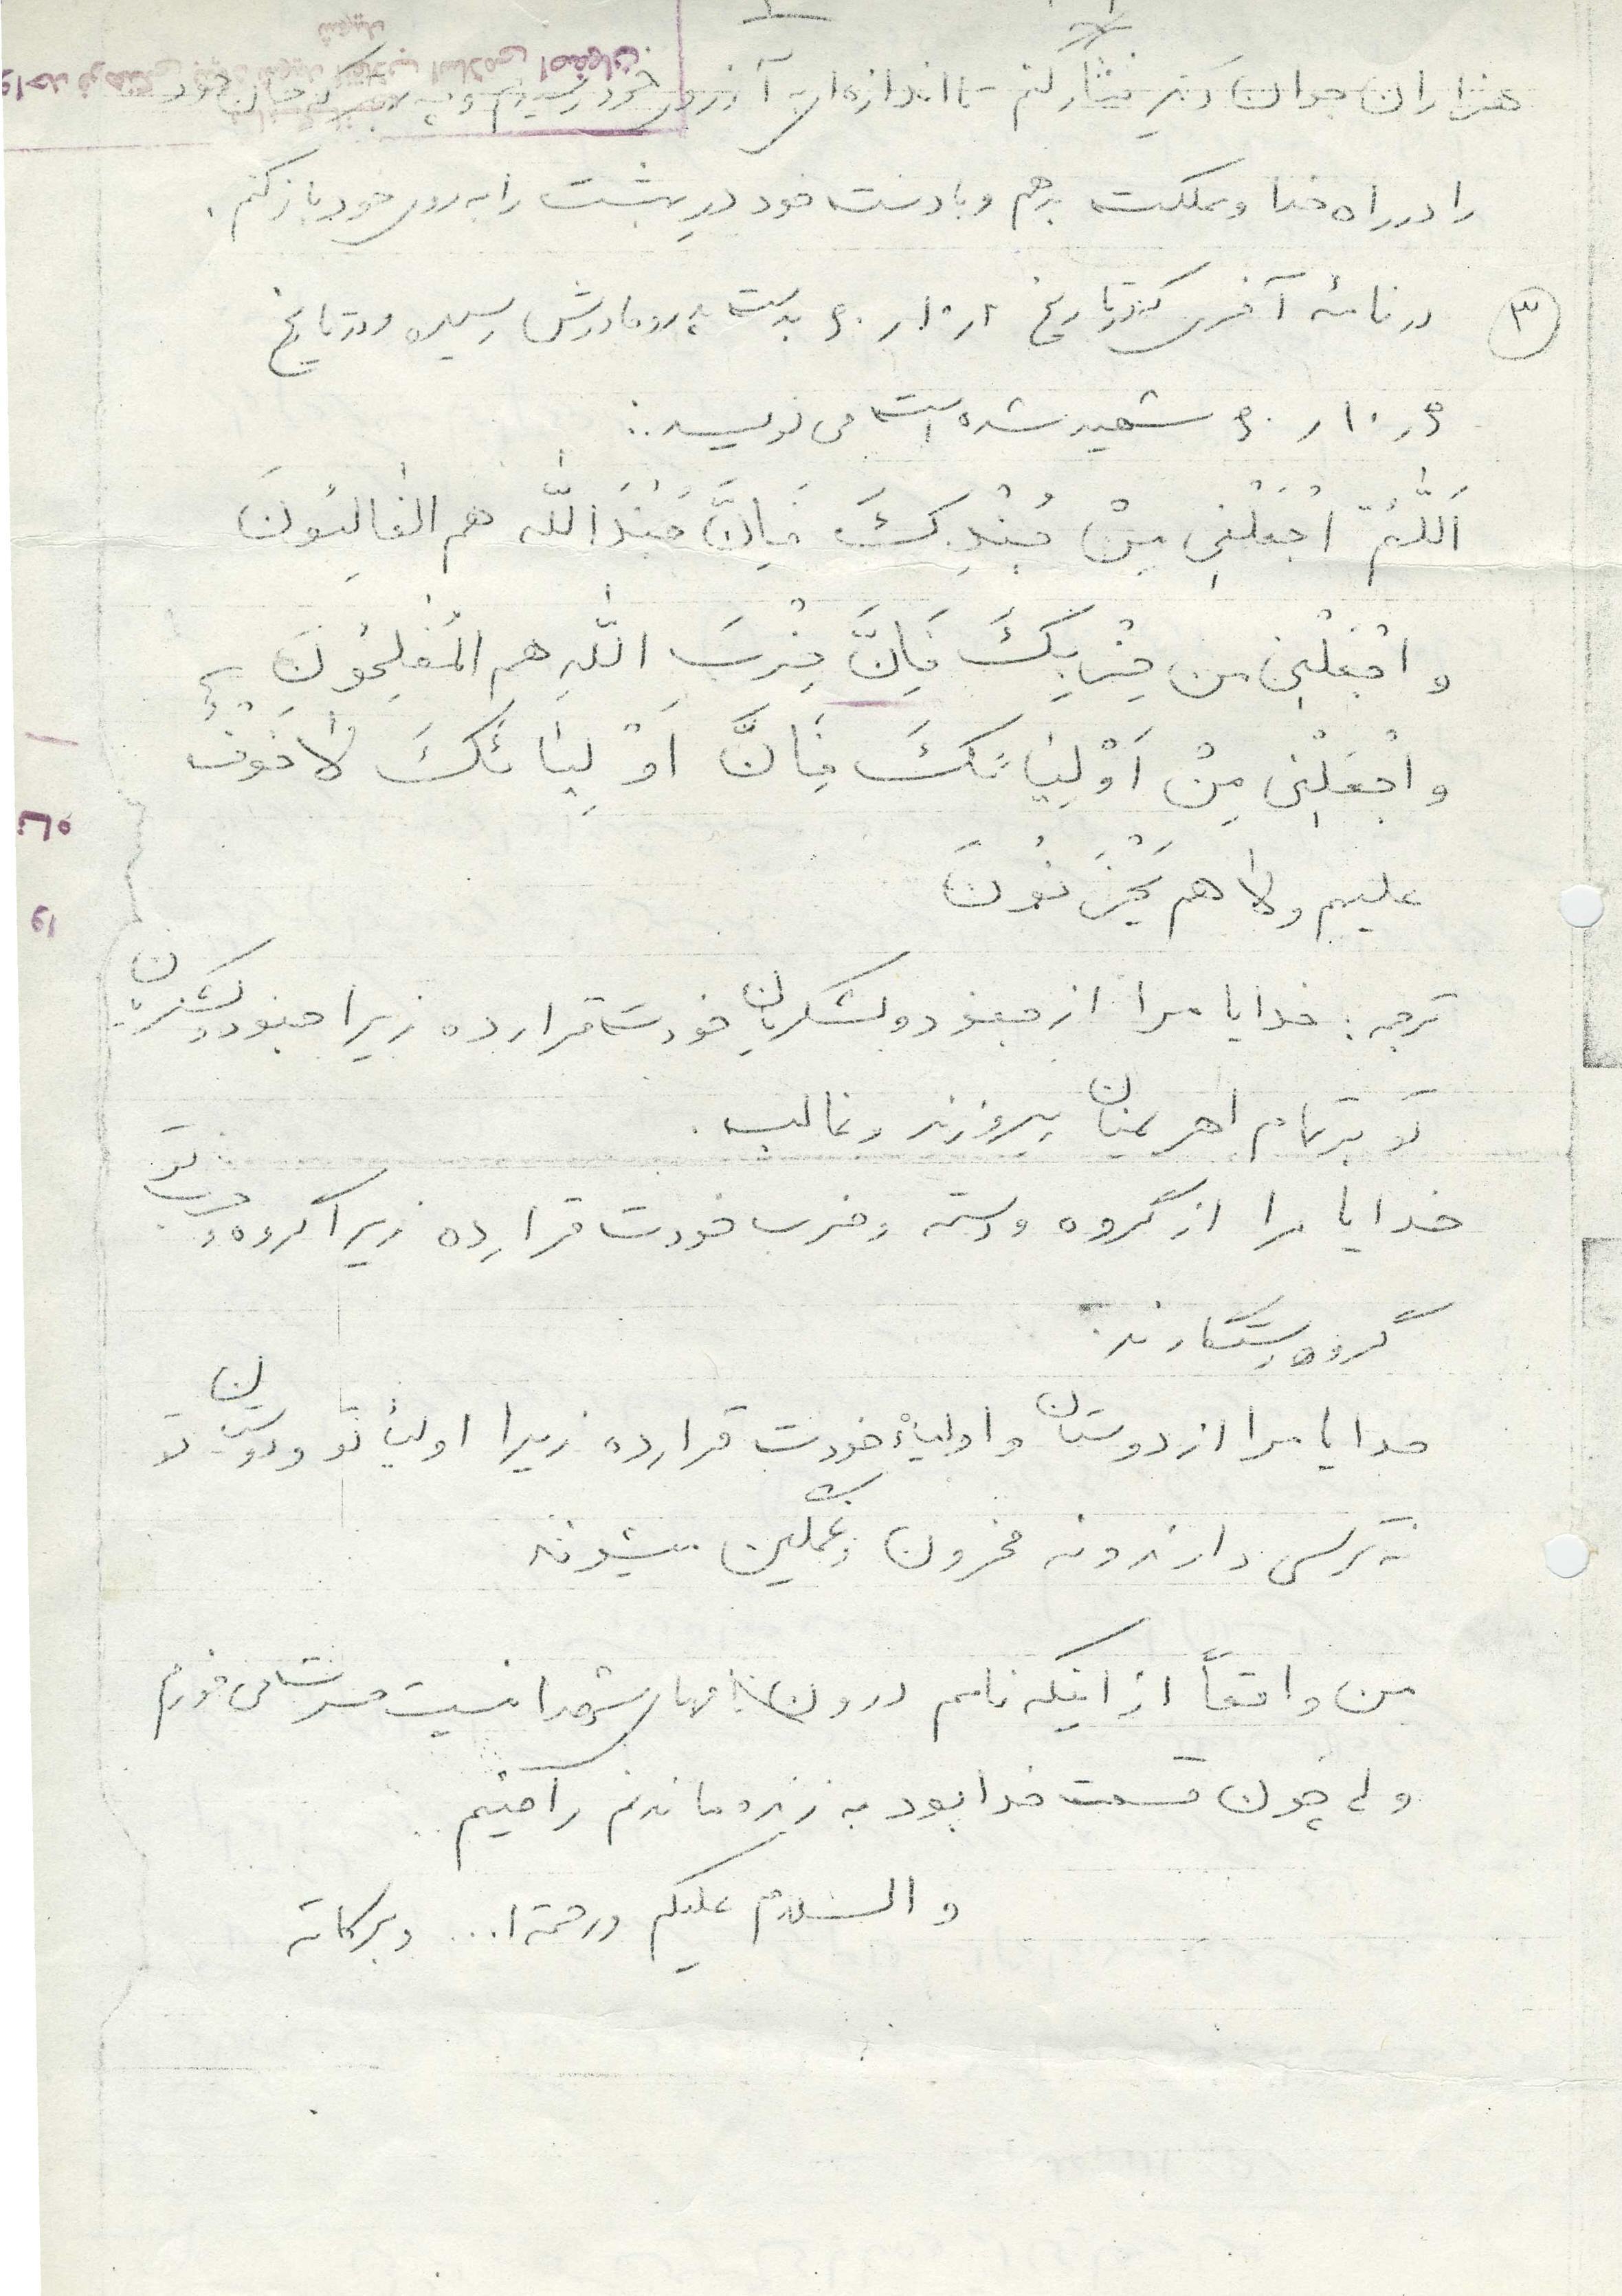 هزاران جوان دیگر نثار کنم تا اندازه‌ای به آرزوی خود رسیدم و به که جان خود
را در راه خدا و مملکت بدهم و با دست خود درِ بهشت را به روی خود باز کنم.
۳ در نامهٔ آخری که در تاریخ ۲ر۱۰ر۶۰ بدست پدر و مادرش رسیده و در تاریخ
۶ر۱۰ر۶۰ شهید شده است می نویسد:
اَللّهُمَّ اجْعَلْنی مِنْ جُنْدِکَ فَاِنَّ جُنْدَ اللّه هم الغالِبُونَ
و اجْعَلْنی من حِزْبِکَ فَاِنَّ حِزْبَ اللّهِ هم المُفْلِحُونَ
و اجْعَلْنی مِنْ اَوْلِیائِکَ فَاِنَّ اَوْلِیائَکَ لا خَوْفٌ
علیهم ولا هم یَحْزَنُونَ
ترجمه: خدایا مرا از جنود و لشکریان خودت قرار ده زیرا جنود و لشکریان
تو بر تمام اهریمنان پیروزند و غالب.
خدایا مرا از گروه و دسته و حزب خودت قرار ده زیرا گروه و حزب تو
گروه رستگارند.
خدایا مرا از دوستان و اولیاء خودت قرار ده زیرا اولیاء تو و دوستان تو
نه ترسی دارند و نه محزون و غمگین میشوند
من واقعاً از اینکه نامم درون نامهای شهدا نیست حسرت می خورم
ولی چون قسمت خدا بود به زنده ماندنم راضیم
و السلام علیکم ورحمة ا... و برکاته